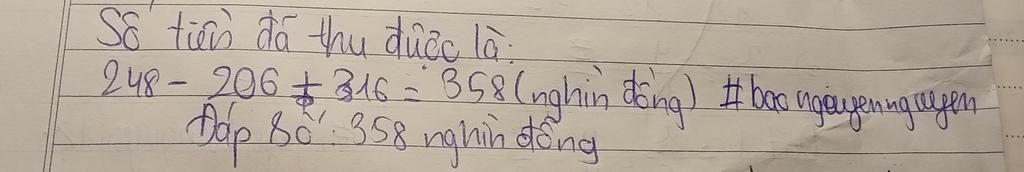 Số tiền đã thu được là:
248 - 206 + 316 = 358 (nghìn đồng) #baongayennguyen
Đáp số: 358 nghìn đồng